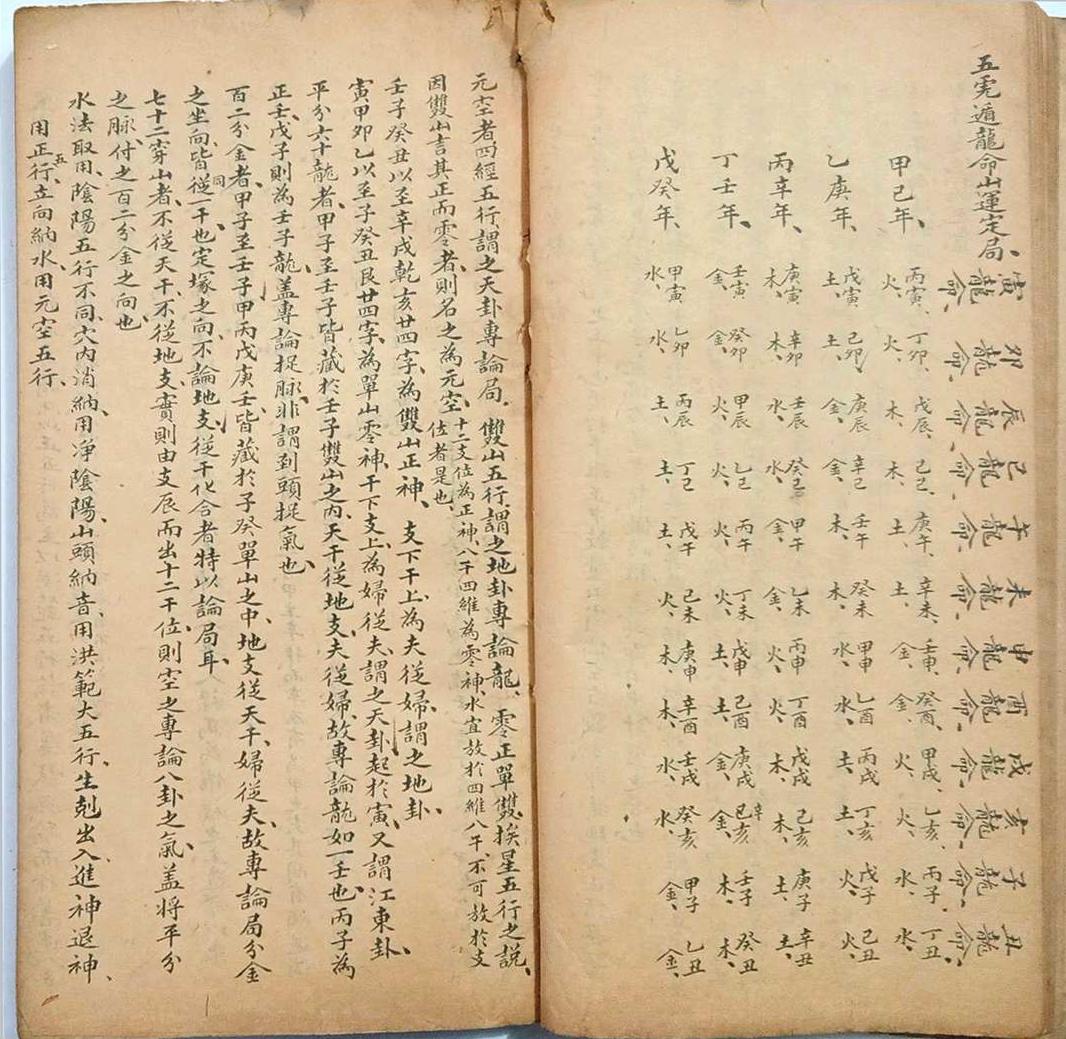 五虎遁龍命山運定局、
寅龍命、卯龍命、辰龍命、巳龍命、午龍命、未龍命、申龍命、酉龍命、戌龍命、亥龍命、子龍命、丑龍命、
甲己年、丙寅火、丁卯火、戊辰木、己巳木、庚午土、辛未土、壬申金、癸酉金、甲戌火、乙亥火、丙子水、丁丑水、
乙庚年、戊寅土、己卯土、庚辰金、辛巳金、壬午木、癸未木、甲申水、乙酉水、丙戌土、丁亥土、戊子火、己丑火、
丙辛年、庚寅木、辛卯木、壬辰水、癸巳水、甲午金、乙未金、丙申火、丁酉火、戊戌木、己亥木、庚子土、辛丑土、
丁壬年、壬寅金、癸卯金、甲辰火、乙巳火、丙午水、丁未水、戊申土、己酉土、庚戌金、辛亥金、壬子木、癸丑木、
戊癸年、甲寅水、乙卯水、丙辰土、丁巳土、戊午火、己未火、庚申木、辛酉木、壬戌水、癸亥水、甲子金、乙丑金、
元空者四經五行、謂之天卦專論局、雙山五行、謂之地卦專論龍、零正單雙挨星五行之說、
因雙山言其正而零者、則名之為元空、十二支位為正神、八干四維為零神、水宜放於四維八干、不可放於支位者是也、
壬子癸丑以至辛戌乾亥廿四字、為雙山正神、支下干上、為夫從婦、謂之地卦、
寅甲卯乙以至子癸丑艮廿四字、為單山零神、干下支上、為婦從夫、謂之天卦、起於寅、又謂江東卦、
平分六十龍者、甲子至壬子皆藏於壬子雙山之內、天干從地支、夫從婦、故專論龍、如一壬也、丙子為
正壬、戊子則為壬子龍、盖專論捉脉、非謂到頭捉氣也、
百二分金者、甲子至壬子甲丙戊庚壬、皆藏於子癸單山之中、地支從天干、婦從夫、故專論局、分金
之坐向、皆從同一干也、定塚之向、不論地支、從干化合者、特以論局耳、
七十二穿山者、不從天干、不從地支、實則由支辰而出十二干位、則空之專論八卦之氣、盖將平分
之脉、付之百二分金之向也、
水法取用、陰陽五行不同、穴內消納、用净陰陽、山頭納音、用洪範大五行、生剋出入、進神退神、
用正五行、立向納水、用元空五行、